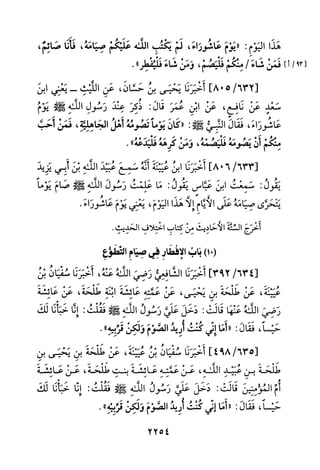 هَذَا اليَوْمِ: «يَوْمَ عَاشُورَاءَ، لَمْ يُكْتُبِ اللَّه عَلَيْكُمْ صِيَامَهُ، فَأَنَا صَائِمٌ،
فَمَنْ شَاءَ / مِنْكُمْ فَلْيَصُمْ، وَمَنْ شَاءَ فَلْيُفْطِرْ». [٧٣ / أ]
[٦٣٢ / ٨٠٥] أَخْبَرَنَا يَحْيَـى بنُ حَسَّانَ، عَنِ اللَّيْثِ ـ يَعْنِي ابنَ
سَعْدٍ ـ عَنْ نَـافِـعٍ، عَنْ ابْنِ عُمَرَ قَالَ: ذُكِرَ عِنْدَ رَسُولِ اللَّـهِ ﷺ يَوْمُ
عَاشُورَاءَ، فَقَالَ النَّبِـيُّ ﷺ: «كَانَ يَوْماً يَصُومُهُ أَهْلُ الجَاهِلِيَّةِ، فَمَنْ أَحَبَّ
مِنْكُمْ أَنْ يَصُومَهُ فَلْيَصُمْهُ، وَمَنْ كَرِهَهُ فَلْيَدَعْهُ».
[٦٣٣ / ٨٠٦] أَخْبَرَنَا ابنُ عُيَيْنَةَ أَنَّهُ سَمِـعَ عُبَيْدَ اللَّهِ بْنَ أَبِـي يَزِيدَ
يَقُولُ: سَمِعْتُ ابنَ عَبَّاسٍ يَقُولُ: مَا عَلِمْتُ رَسُولَ اللَّهِ ﷺ صَامَ يَوْماً
يَتَحَرَّى صِيَامَهُ عَلَى الأَيَّامِ إلاَّ هَذَا اليَوْمَ، يَعْنِي يَوْمَ عَاشُورَاءَ.
أَخْرَجَ السِّتَّةَ الأَحَادِيثَ مِنْ كِتَابِ اخْتِلافِ الحَدِيثِ.
(١٠) بَابُ الإِفْطَارِ فِي صِيَامِ التَّطَوُّعِ
[٦٣٤ / ٣٩٢] أَخْبَرَنَا الشَّافِعِيُّ رَضِيَ اللَّهُ عَنْهُ، أَخْبَرَنَا سُفْيَانُ بْنُ
عُيَيْنَةَ، عَنْ طَلْحَةَ بنِ يَحْيَـى، عَنْ عَمَّتِهِ عَائِشَةَ ابْنَةِ طَلْحَةَ، عَنْ عَائِشَةَ
رَضِيَ اللَّهُ عَنْهَا قَالَتْ: دَخَلَ عَلَيَّ رَسُولُ اللَّهِ ﷺ فَقُلْتُ: إِنَّا خَبَأْنَا لَكَ
حَيْساً، فَقَالَ: «أَمَا إنِّي كُنْتُ أُرِيدُ الصَّوْمَ وَلَكِنْ قَرِّبِيهِ».
[٦٣٥ / ٤٩٨] أَخْبَرَنَا سُفْيَانُ بْنُ عُيَيْنَةَ، عَنْ طَلْحَةَ بنِ يَحْيَـى بنِ
طَلْحَةَ بـنِ عُبَيْدِ اللَّـهِ، عَـنْ عَمَّـتِـهِ عَـائِـشَـةَ بـنـتِ طَلْـحَـةَ، عَـنْ عَـائِـشَـةَ
أُمِّ المُؤْمِنِينَ قَالَتْ: دَخَلَ عَلَيَّ رَسُولُ اللَّهِ ﷺ فَقُلْتُ: إِنَّا خَبَأْنَا لَكَ
حَيْساً، فَقَالَ: «أَمَا إنِّي كُنْتُ أُرِيدُ الصَّوْمَ وَلَكِنْ قَرِّبِيهِ».
٢٢٥٤